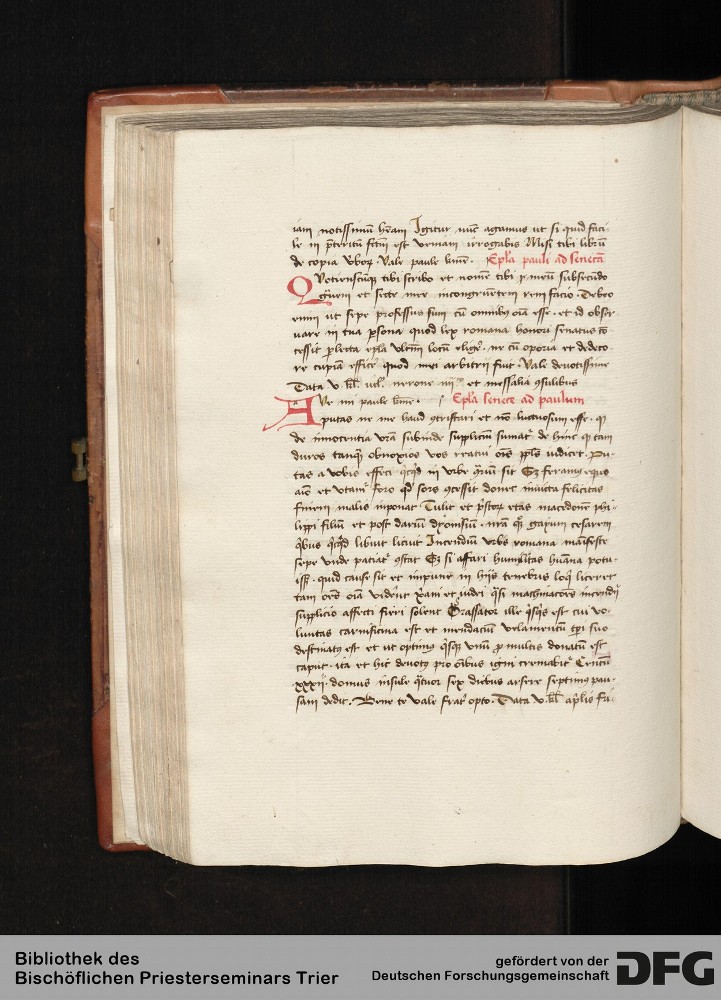 iam notissimū hēam Igitur nūc agamus ut si quid faci-
le in p̄teritū fcm̄ est veniam irrogabis Misi tibi librū
de copia vboꝝ Vale paule kme· Epl̄a pauli ad senecā
Quotienscūqꝫ tibi scribo et nomē tibi meū subsecūdo
et secte mee incongruētem rem facio · Debeo
enim ut sepe professus sum cū omnibus oīa esse · et id obser
vare in tua ꝑsona quod lex romana honori senatus cō
cessit ꝑlecta epl̄a vltm̄ locū eligē̄ · ne cū aporia et dedeco-
re cupiā efficē quod mei arbitrii fuit · Vale devotissime
Data v kl̄ nerone iiii et messalia ꝯsulibus
Ave mi paule kme · Epl̄a senece ad paulum
putas ne me haud ꝯtristari et nō luctuosum esse · qꝫ
de innocentia vrā subinde suppliciū sumat̄ de hinc qꝫ tam
duros tanqꝫ obnoxios vos reatui oīs ppls̄ iudicet · Pu-
tas a vobis effici quicqd in vrbe sit Sꝫ feramꝰ equo
aīo et vtamr̄ foro qd̄ sors ꝯcessit donec invicta felicitas
finem malis imponat Tulit et pr̄scoꝝ etas macedonē phi-
lippi filiū et post dariū dyonisiū · nrā qꝫ gayum cesarem
qͥbus qͥcqd libuit licuit Incendiū vrbs romana manifeste
sepe vnde patiatr̄ ꝯstat Sꝫ si affari humilitas hūana potu-
iss̄ · quid cause sit et impune in hijs tenebris loqͥ liceret
tam oēs oīa vidērit xr̄iani et iudei qͣsi machinatores incendij
supplicio affecti fieri solent Grassator ille qͥsqͥs est cui vo-
luntas carnificina est et mendaciū velamentū tp̄i suo
destinatꝰ est et ut optimꝰ qͥsqꝫ vnū ꝓ multis donatū est
caput · ita et hic devotꝰ pro oībus igni cremabit̄ Centū
xxxij · domus insule qͣtuor sex diebus arsere septimꝰ pau-
sam dedit · Bene te vale frat̄ opto · Data v · kl̄ apl̄is fri-
Bibliothek des
Bischöflichen Priesterseminars Trier
gefördert von der
Deutschen Forschungsgemeinschaft DFG